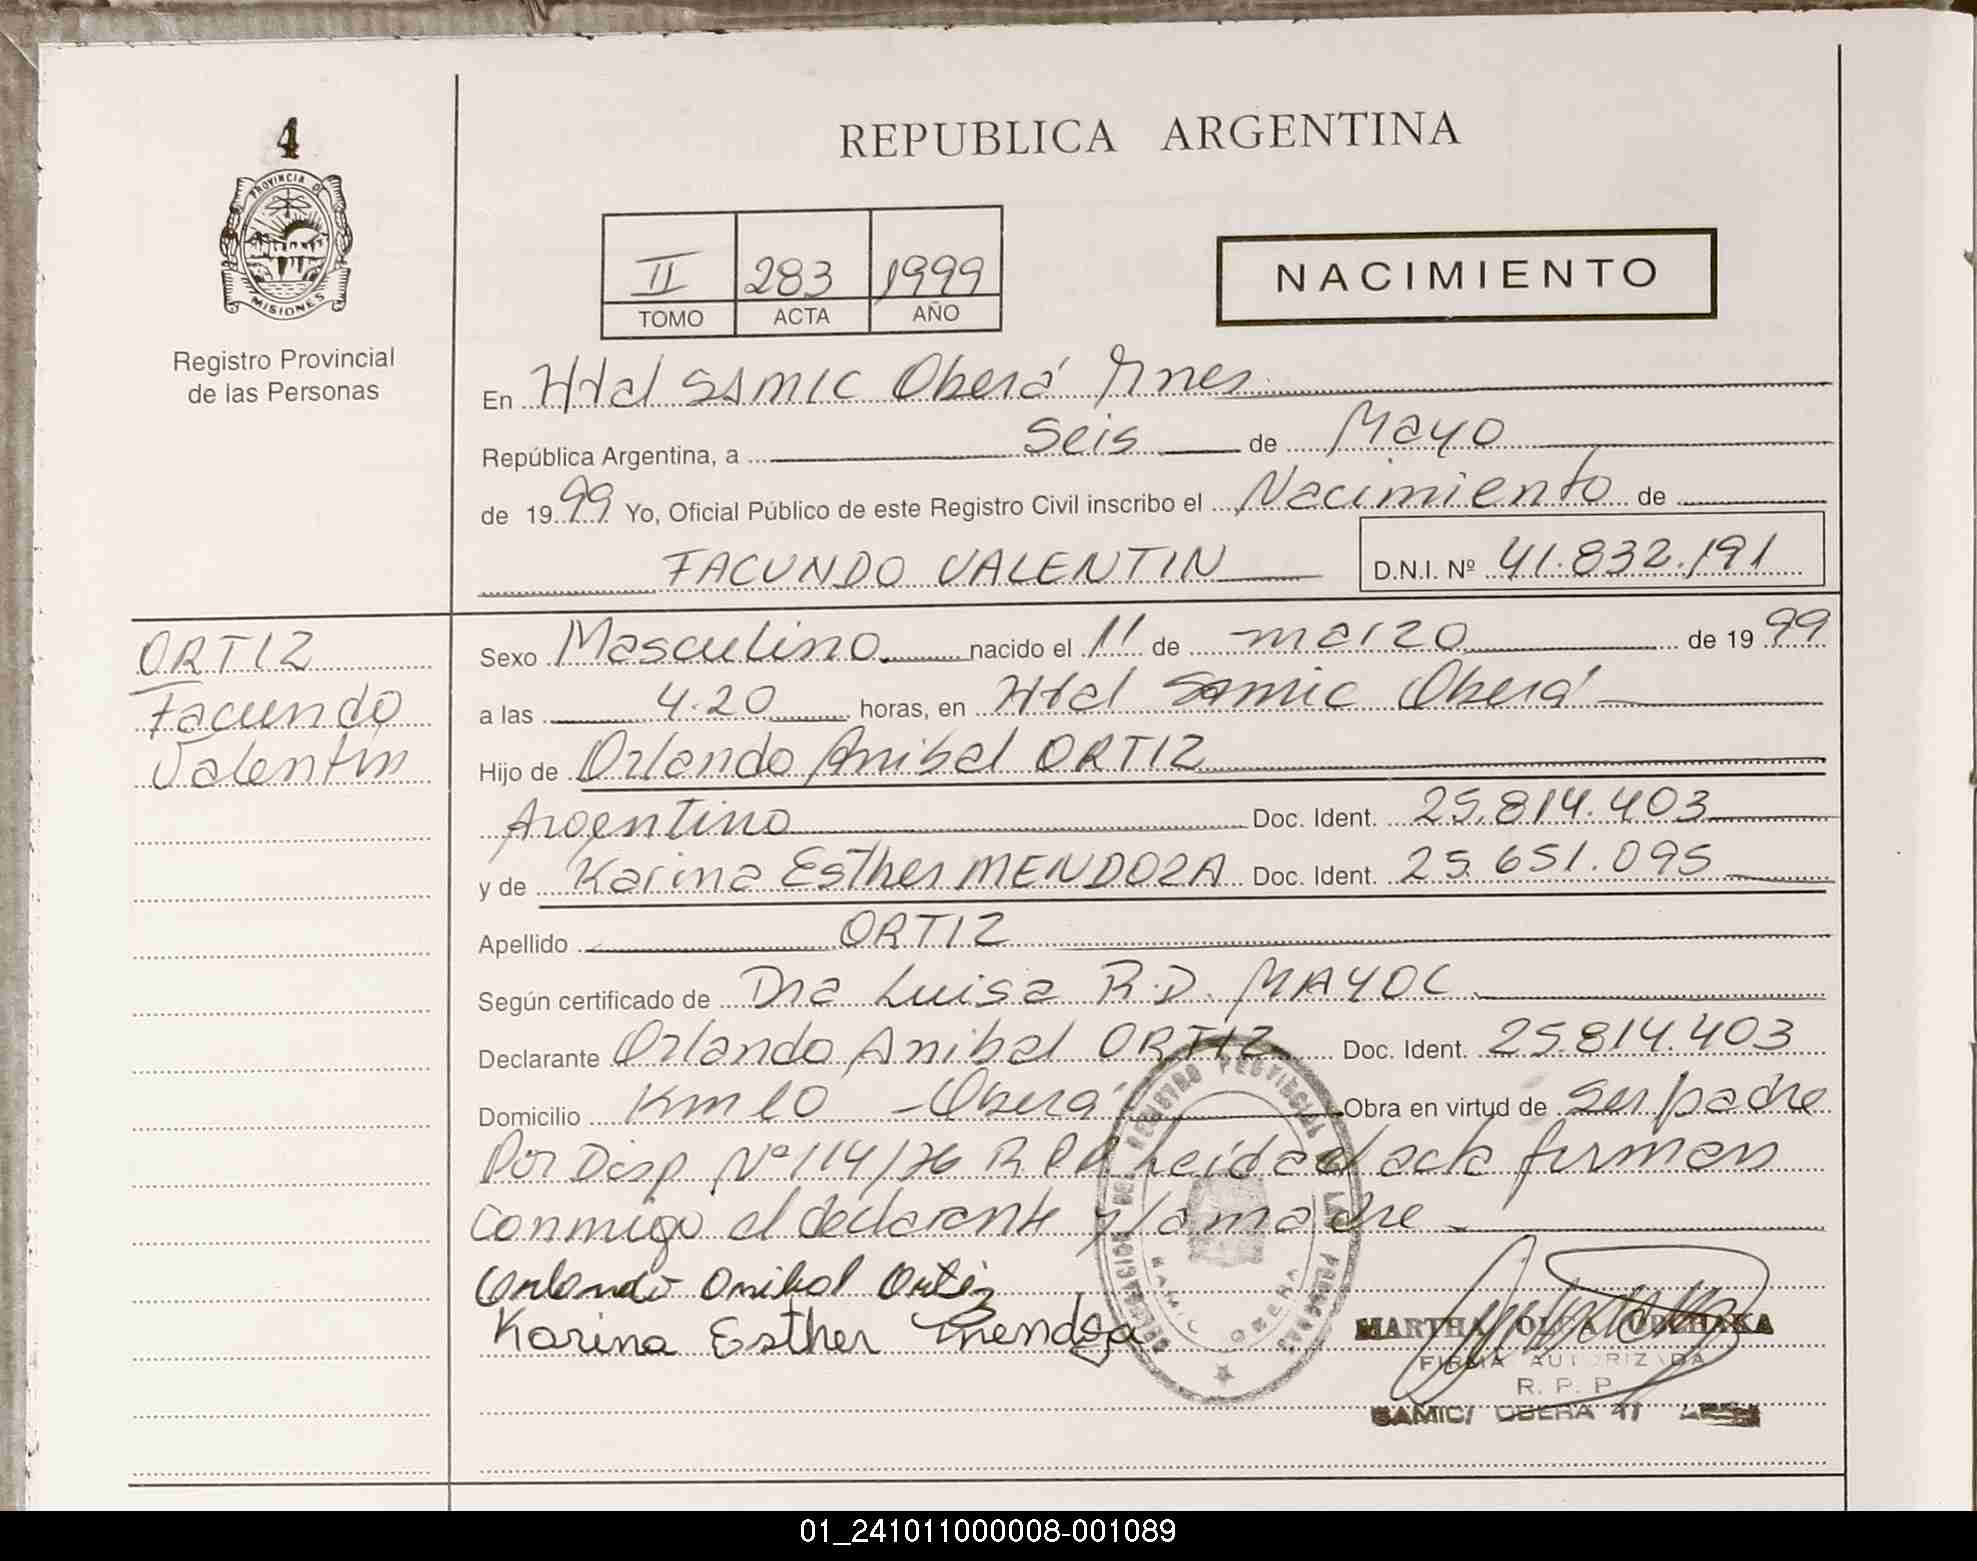 4
PROVINCIA DE
MISIONES
Registro Provincial
de las Personas
REPUBLICA ARGENTINA
II 283 1999
TOMO ACTA AÑO
NACIMIENTO
En Htal SAMIC Oberá Mnes
República Argentina, a Seis de Mayo
de 1999 Yo, Oficial Público de este Registro Civil inscribo el Nacimiento de
FACUNDO VALENTIN D.N.I. Nº 41.832.191
ORTIZ
Facundo
Valentin
Sexo Masculino nacido el 11 de marzo de 1999
a las 4.20 horas, en Htal Samic Oberá
Hijo de Orlando Anibal ORTIZ
Argentino Doc. Ident. 25.814.403
y de Karina Esther MENDOZA Doc. Ident. 25.651.095
Apellido ORTIZ
Según certificado de Dra Luisa R.D. MAYOL
Declarante Orlando Anibal ORTIZ Doc. Ident. 25.814.403
Domicilio Km 10 - Oberá Obra en virtud de ser padre
Por Disp Nº 114/76 R.P.P. Leída el acta firman
conmigo el declarante y la madre
Orlando Anibal Ortiz
Karina Esther Mendoza
DELEGACION DEL REGISTRO PROVINCIAL DE LAS PERSONAS
SAMIC OBERA
MARTHA OLGA
FIRMA AUTORIZADA
R. P. P
SAMIC/ OBERA
01_241011000008-001089